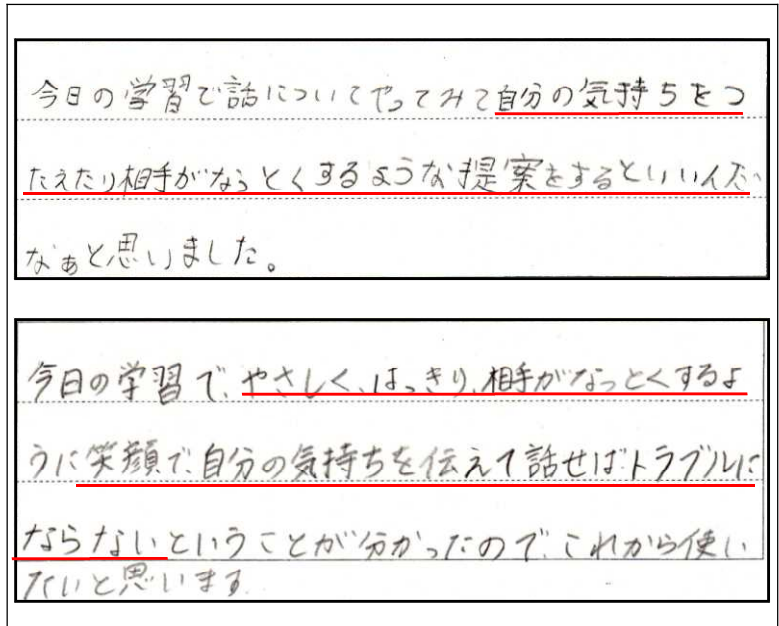 今日の学習で話についてやってみて自分の気持ちをつ
たえたり相手がなっとくするような提案をするといいんだ
なぁと思いました。
今日の学習で、やさしく、はっきり、相手がなっとくするよ
うに笑顔で、自分の気持ちを伝えて話せばトラブルに
ならないということが分かったので、これから使い
たいと思います